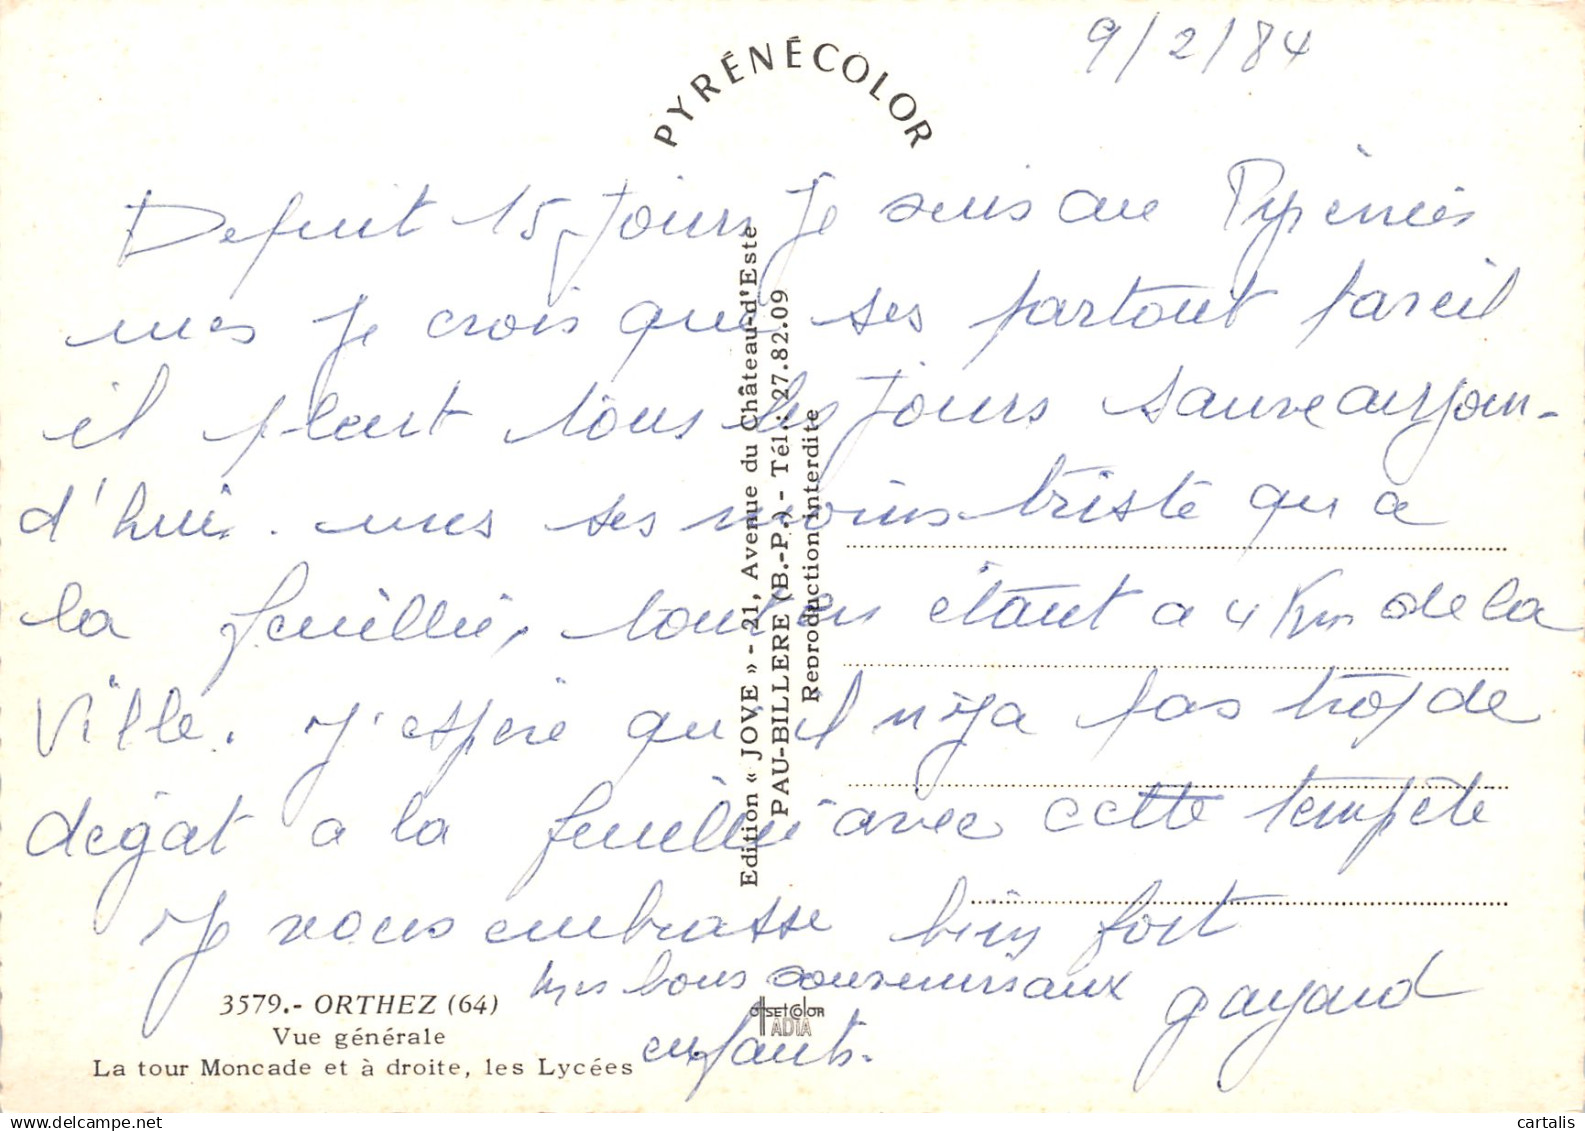 9/2/84
PYRÉNÉCOLOR
Depuit 15 Jours Je suis au Pyrénées
mes Je crois que ses partout pareil
il pleut tous les Jours sauve aurjoun-
d'hui. mes ses moins triste qu a
la feuillie, tout en étant a 4 Km de la
Ville. J'espere qu'il n'y a pas trop de
degat a la feuillie avec cette tempête
Je vous embrasse bien fort
mes bons souvenirs aux gayard
enfants.
Edition « JOVE » - 21, Avenue du Château-d'Este
PAU-BILLERE (B.-P.) - Tél. : 27.82.09
Reproduction interdite
3579.- ORTHEZ (64)
Vue générale
La tour Moncade et à droite, les Lycées
OffsetColor
ADIA
cartalis